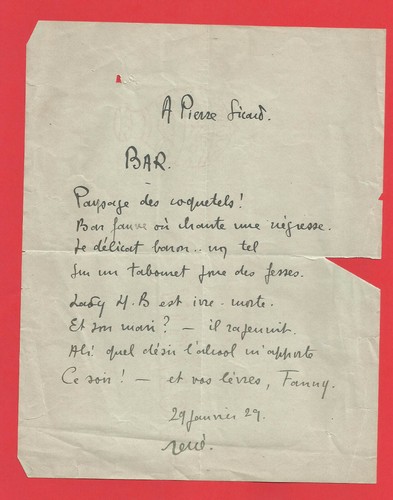 A Pierre Sicard.
BAR.
Paysage des coquetels!
Bar fauve où chante une négresse.
Le délicat baron.. un tel
Sur un tabouret joue des fesses.
Lady H.B est ivre-morte.
Et son mari? — il rajeunit.
Ah! quel désir l'alcool m'apporte
Ce soir! — et vos lèvres, Fanny.
29 janvier 29.